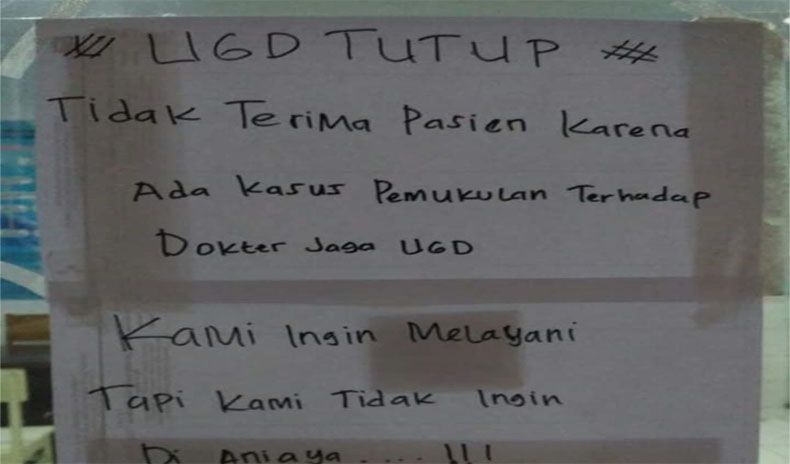 UGD TUTUP
Tidak Terima Pasien Karena
Ada Kasus Pemukulan Terhadap
Dokter Jaga UGD
Kami Ingin Melayani
Tapi Kami Tidak Ingin
Di Aniaya .... !!!